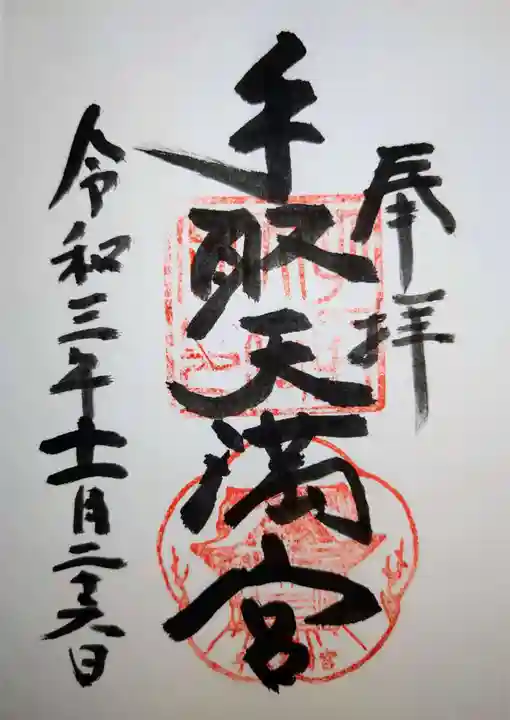 奉拝
手取天満宮
令和三年十一月二十六日
宮